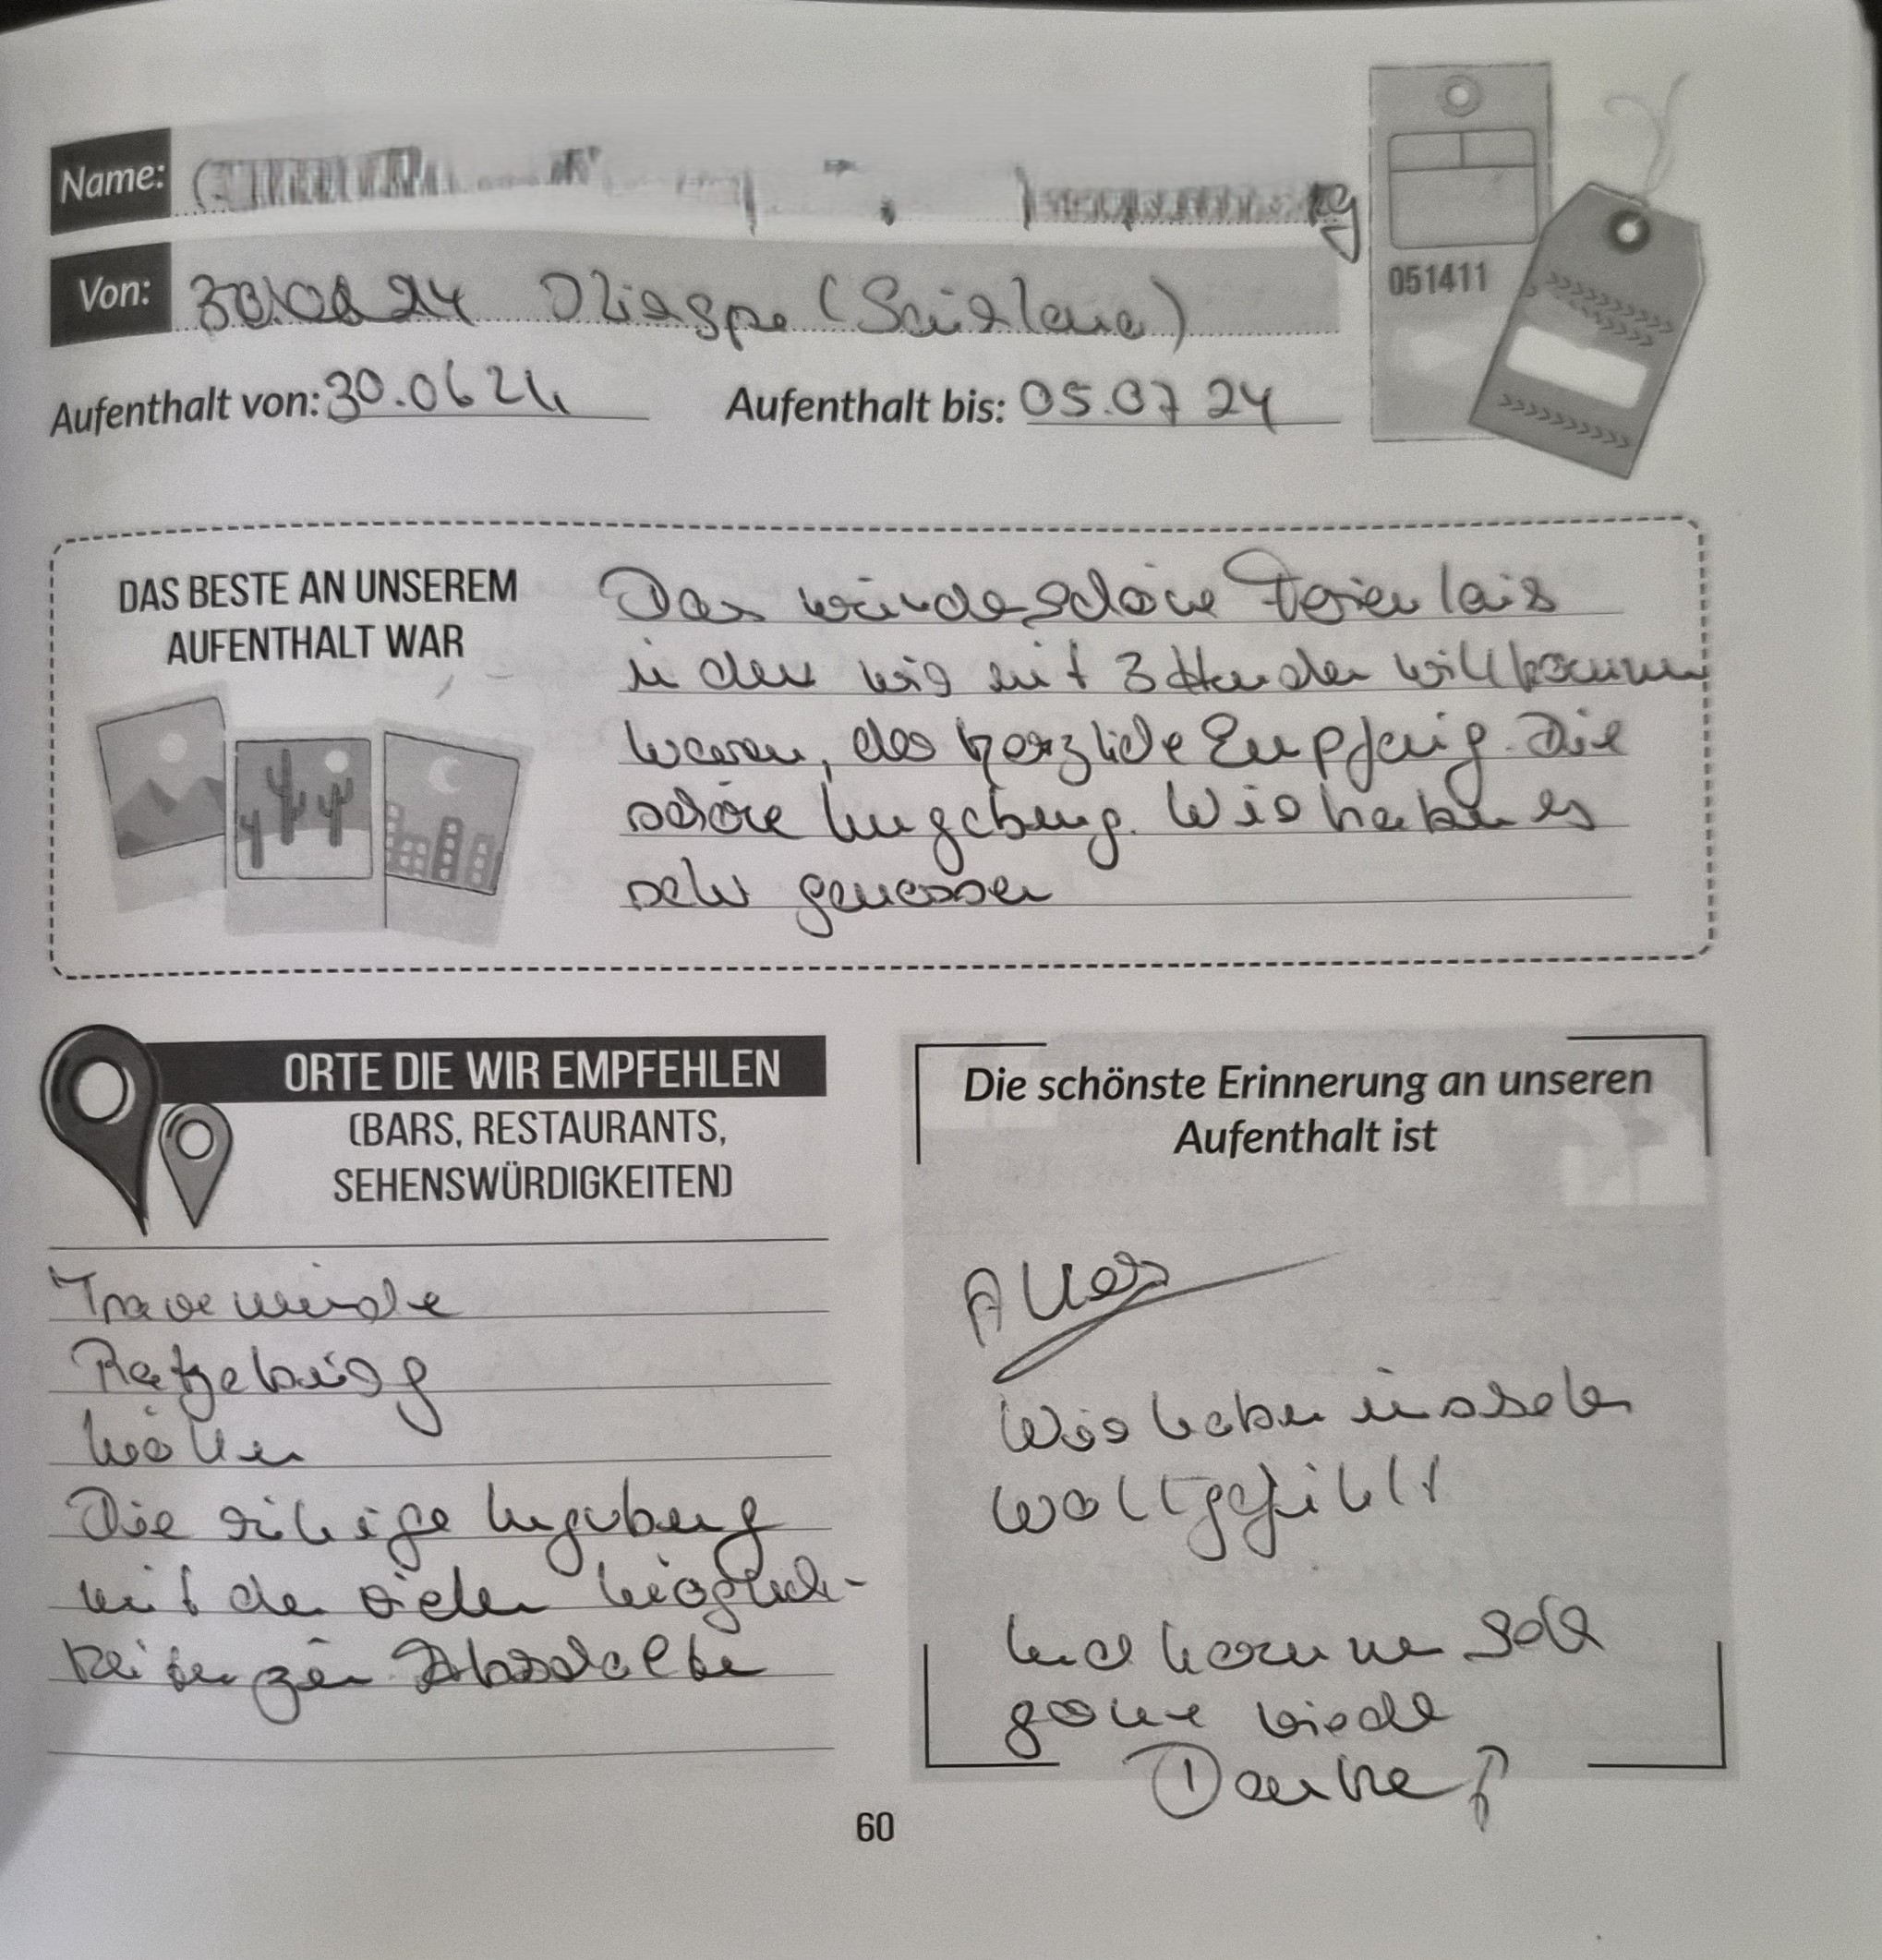 Name:
Von: 30.06 24 Olespe (Sauerland)
Aufenthalt von: 30.06 24 Aufenthalt bis: 05.07 24
051411
DAS BESTE AN UNSEREM
AUFENTHALT WAR
Das wunderschöne Ferienhaus
in dem wir mit 3 Hunden willkommen
waren, der herzliche Empfang. Die
schöne Umgebung. Wir haben es
sehr genossen
ORTE DIE WIR EMPFEHLEN
(BARS, RESTAURANTS,
SEHENSWÜRDIGKEITEN)
Travemünde
Ratzeburg
Mölln
Die ruhige Umgebung
mit den vielen Möglich-
keiten zum Abschalten
Die schönste Erinnerung an unseren
Aufenthalt ist
Alles
Wir haben uns sehr
wohlgefühlt
Und kommen sehr
gerne wieder
Danke!
60